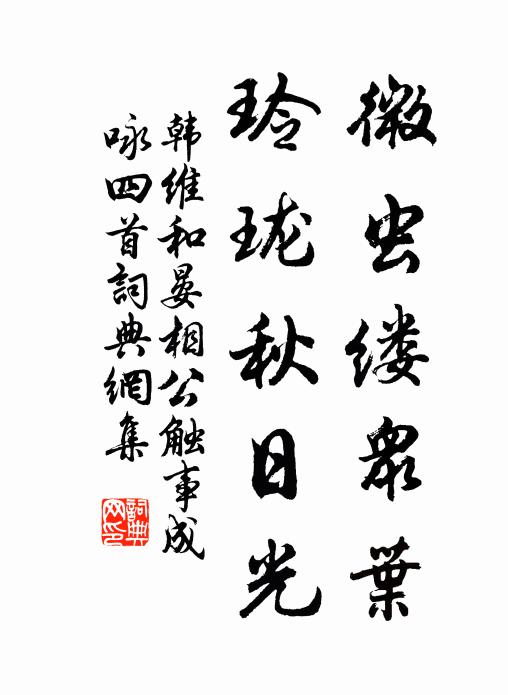 微虫缕众葉
玲珑秋日光
韩维和晏相公触事成
咏四首詞典網集
詞典网印